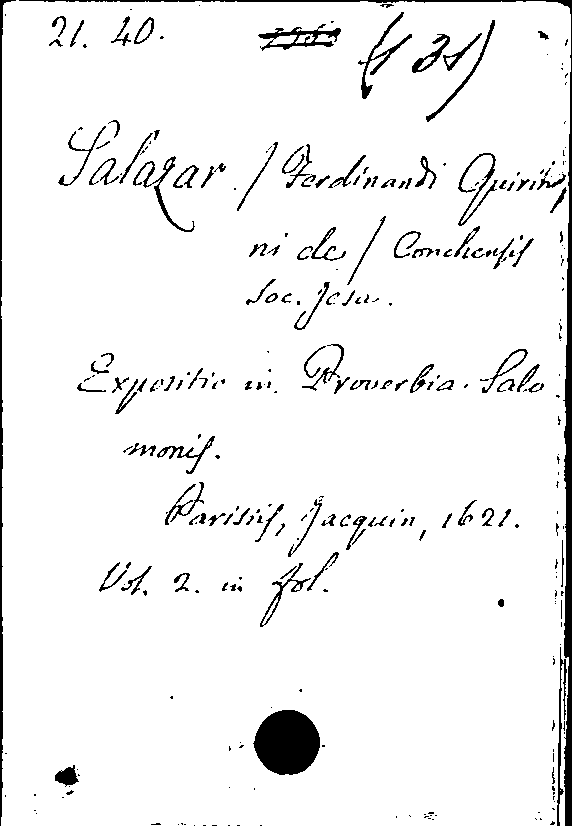 21. 40. (131)
Salazar / Ferdinandi Quirin,
ni de / Conchensis
Soc. Jesu.
Expositio in Proverbia Salo
monis.
Parisiis, Jacquin, 1621.
Vol. 2. in fol.